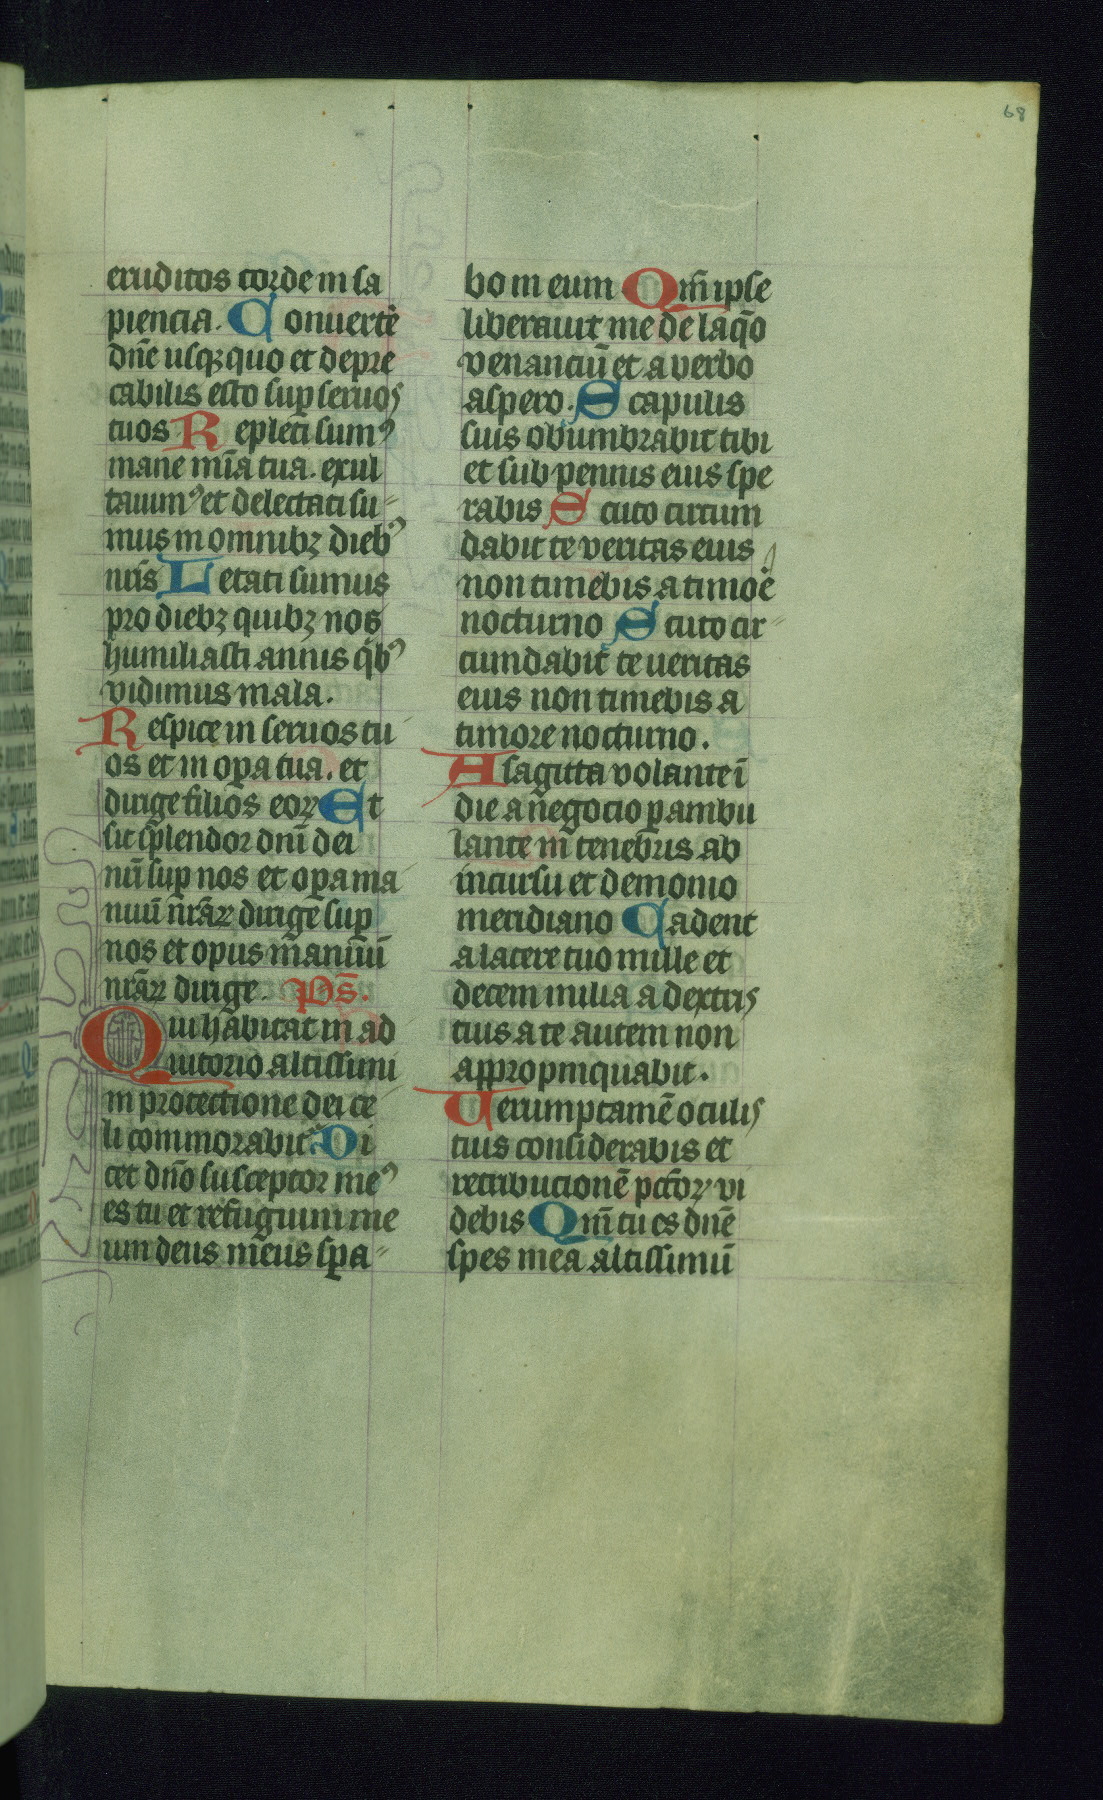 68
eruditos corde in sa
piencia. Conuertē
dn̄e usqꝫquo et depre
cabilis esto suꝑ seruos
tuos Repleti sumꝰ
mane mīa tua. exul
tauimꝰ et delectati su⸗
mus in omnibꝫ diebꝰ
nr̄is Letati sumus
pro diebꝫ quibꝫ nos
humiliasti annis qͥbꝰ
vidimus mala.
Respice in seruos tu
os et in oꝑa tua. et
dirige filios eoꝝ Et
sit splendor dnī dei
nr̄i suꝑ nos et oꝑa ma
nuū nr̄aꝝ dirige suꝑ
nos et opus manuū
nr̄aꝝ dirige. Ps̄.
Qui habitat in ad
iutorio altissimi
in protectione dei ce
li commorabit᷑ Di
cet dn̄o susceptor meꝰ
es tu et refugium me
um deus meus sꝑa⸗
bo in eum Qm̄ ipse
liberauit me de laq̄o
venanciū et a verbo
aspero. Scapulis
suis obumbrabit tibi
et sub pennis eius spe
rabis Scuto circum
dabit te veritas eius
non timebis a timoē
nocturno Scuto cir⸗
cundabit te ueritas
eius non timebis a
timore nocturno.
A sagitta volante ī
die a negocio ꝑambu
lante in tenebris ab
incursu et demonio
meridiano Cadent
a latere tuo mille et
decem milia a dextris
tuis a te autem non
appropinquabit.
Verumptamē oculis
tuis considerabis et
retribucionē pctōꝝ vi
debis Qm̄ tu es dn̄e
spes mea altissimū